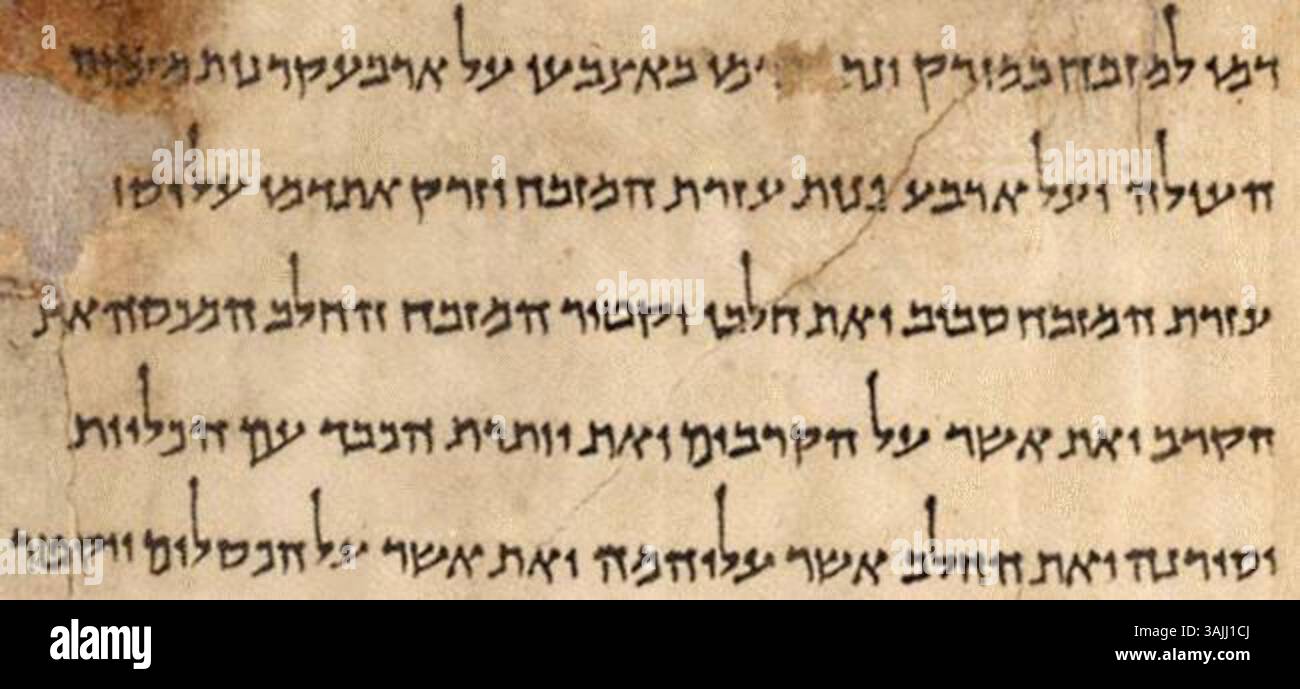 דמו למזבח במזרק באצבעו על ארבע קרנות מזבח
העולה ועל ארבע פנות עזרת המזבח וזרק את דמו על יסוד
עזרת המזבח סביב ואת חלבו יקטיר המזבח החלב המכסה את
הקרב ואת אשר על הקרבים ואת יותרת הכבד עם הכליות
יסירנה ואת החלב אשר עליהמה ואת אשר על הכסלים ויקטר
alamy
Image ID: 3AJJ1CJ
www.alamy.com